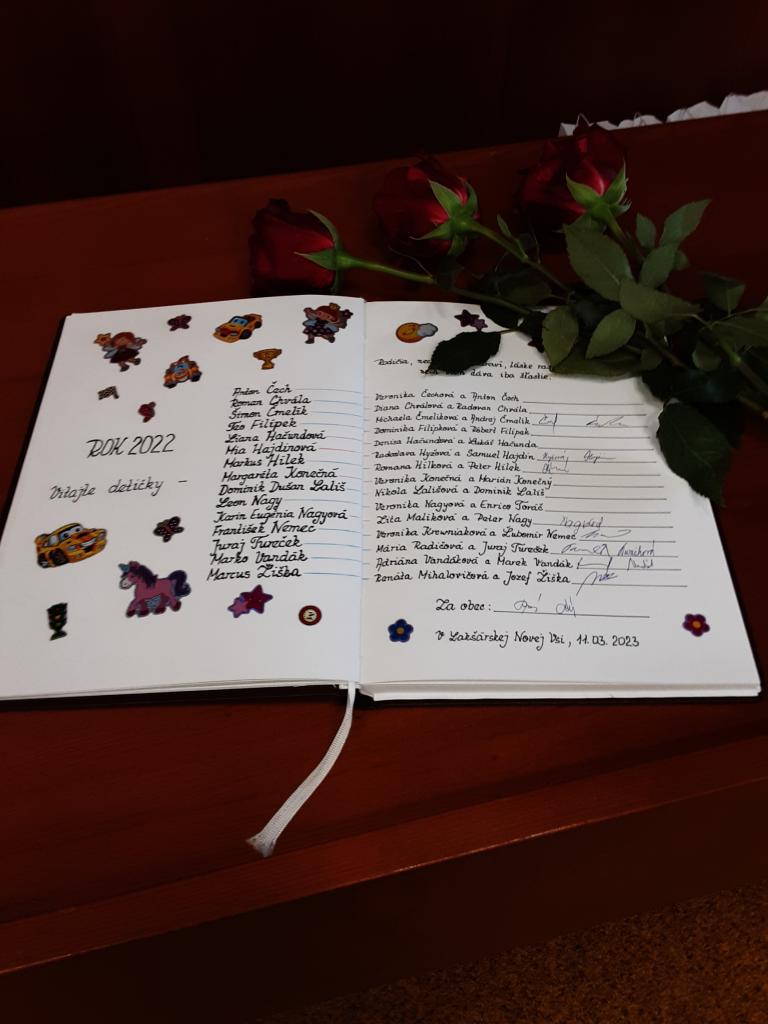 ROK 2022
Vitajte detičky -
Anton Čech
Roman Chvála
Šimon Emelik
Teo Filípek
Liana Hačundová
Mia Hajdinová
Markus Hílek
Margaréta Konečná
Dominik Dušan Lališ
Leon Nagy
Karin Eugénia Nagyová
František Nemec
Juraj Tureček
Marko Vandák
Marcus Žiška
Rodičia, láske
dáva iba šťastie.
Veronika Čechová a Anton Čech
Diana Chválová a Radovan Chvála
Michaela Emeliková a Andrej Emelik
Dominika Filípková a Róbert Filípek
Denisa Hačundová a Lukáš Hačunda
Radoslava Hyžová a Samuel Hajdin
Romana Hílková a Peter Hílek
Veronika Konečná a Marián Konečný
Nikola Lališová a Dominik Lališ
Veronika Nagyová a Enrico Toráš
Zita Malíková a Peter Nagy
Veronika Krewniaková a Ľubomír Nemec
Mária Radičová a Juraj Tureček
Adriána Vandáková a Marek Vandák
Renáta Mihalovičová a Jozef Žiška
Za obec:
V Lakšárskej Novej Vsi, 11.03.2023